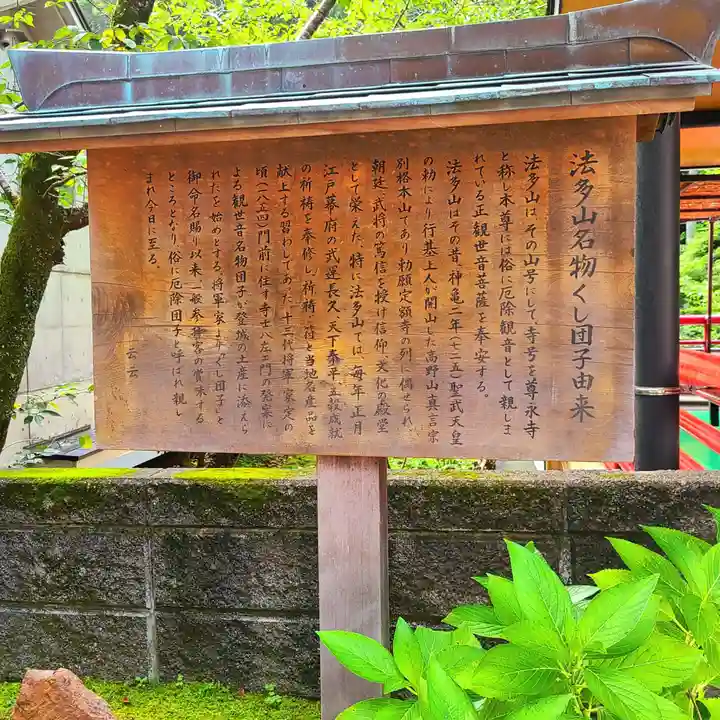 法多山名物くし団子由来
法多山は、その山号にして、寺号を尊永寺
と称し本尊には俗に厄除観音として親しま
れている正観世音菩薩を奉安する。
法多山はその昔、神亀二年(七二五)聖武天皇
の勅により行基上人が開山した高野山真言宗
別格本山であり勅願定額寺の列に偶せられ、
朝廷、武将の篤信を授け信仰、文化の殿堂
として栄えた。特に法多山では、毎年正月
江戸幕府の武運長久、天下泰平、五穀成就
の祈祷を奉修し、祈祷、符と当地名産品を
献上する習わしであった。十三代将軍、家定の
頃(一八五四)門前に住す寺士八左ェ門の発案に
よる観世音名物団子が登城の土産に添えら
れたを始めとする。将軍家より「くし団子」と
御命名賜り以来、一般参拝客の賞味する
ところとなり、俗に厄除団子と呼ばれ親し
まれ今日に至る。
云云